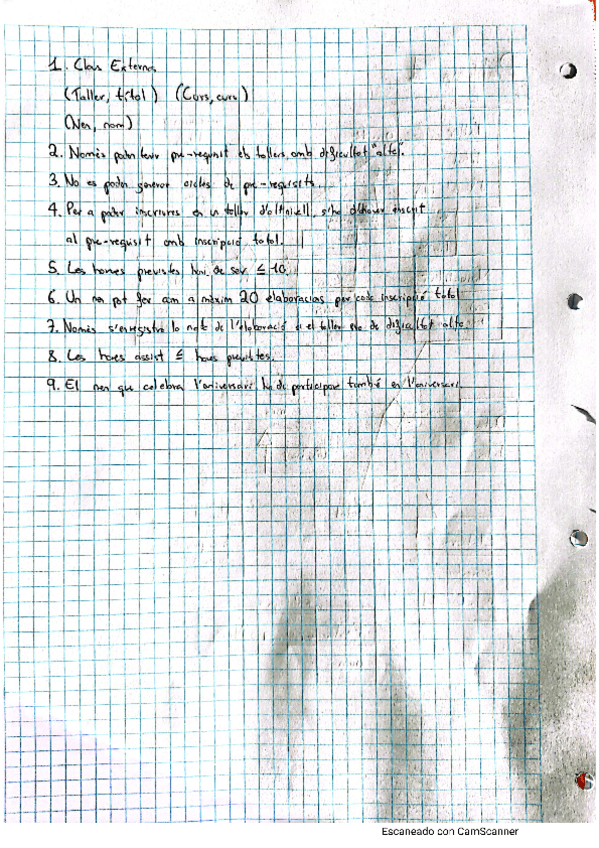 1. Claus Externes
(Taller, títol) (Curs, curs)
(Nen, nom)
2. Només poden tenir pre-requisit els tallers amb dificultat "alta".
3. No es poden generar cicles de pre-requisits.
4. Per a poder inscriures en un taller d'alt nivell, s'ha d'haver inscrit
al pre-requisit amb inscripció total.
5. Les hores previstes han de ser ≤ 10.
6. Un nen pot fer com a màxim 20 elaboracions per cada inscripció total
7. Només s'enregistra la nota de l'elaboració si el taller és de dificultat alta.
8. Les hores assist ≤ hores previstes.
9. El nen que celebra l'aniversari ha de participar també en l'aniversari.
Escaneado con CamScanner